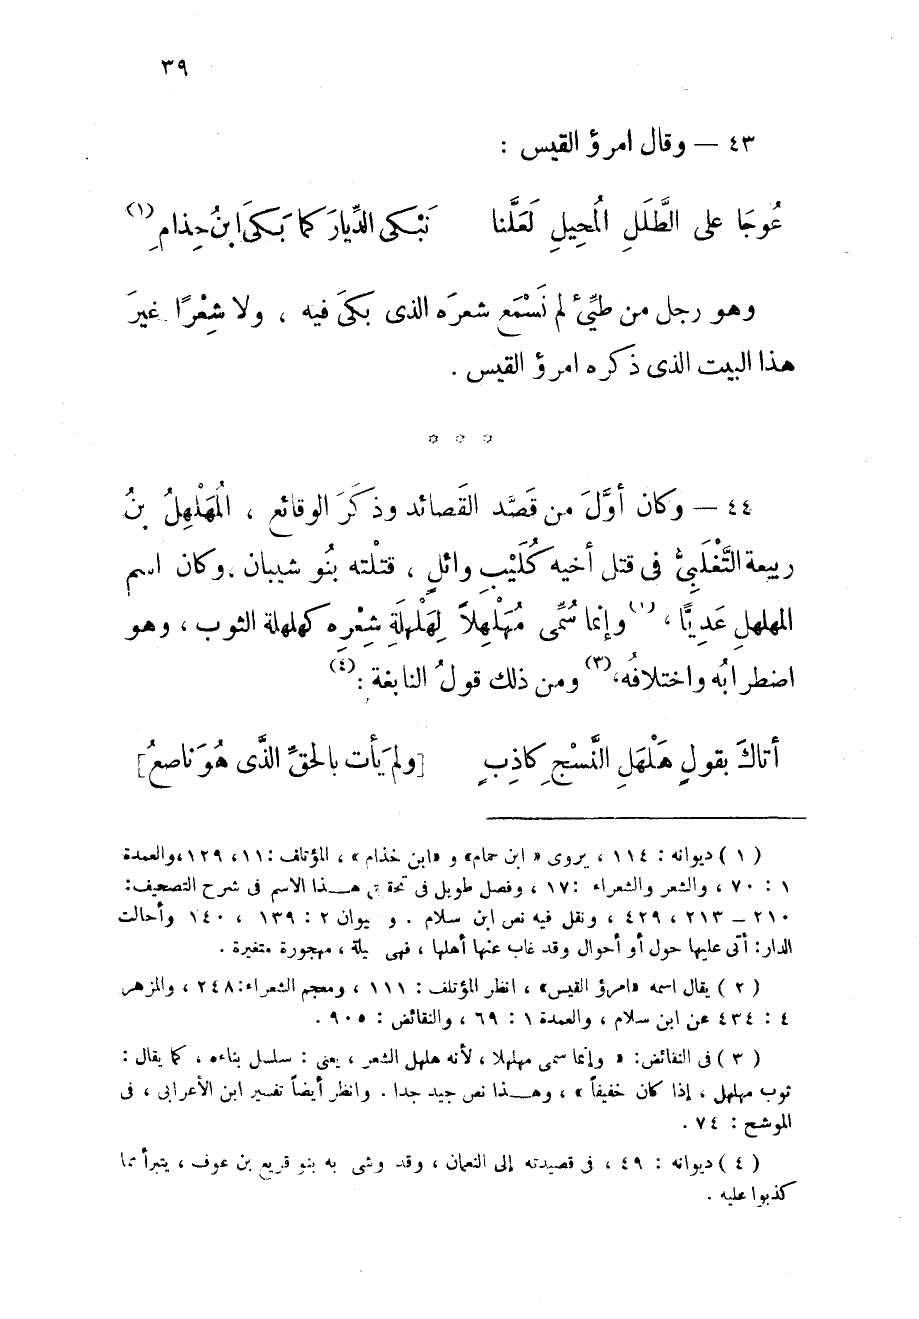 ٣٩
٤٣ — وقال امرؤ القيس :
عُوجَا على الطَّلَلِ الْمُحِيلِ لَعَلَّنا نَبْكى الدِّيارَ كما بَكَىَ ابنُ حِذامِ (١)
وهو رجل من طيِّئ لم نَسْمَع شعرَه الذى بكىَ فيه ، ولا شِعْرًا غيرَ
هذا البيت الذى ذكره امرؤ القيس .
* * *
٤٤ — وكان أوَّلَ من قَصَّد القَصائد وذكَرَ الوقائع ، الْمُهَلْهِلُ بنُ
ربيعة التَّغْلَبِىُّ فى قتل أخيه كُلَيْبِ وائلٍ ، قتلْته بنُو شيبان . وكان اسم
المهلهلِ عَدِيًّا ، (٢) وإنما سُمِّى مُهَلْهِلاً لِهَلْهَلَةِ شِعْرِه كهلهلة الثوب ، وهو
اضطرابُه واختلافُه، (٣) ومن ذلك قولُ النابغة : (٤)
أتاكَ بقولٍ هَلْهَلِ النَّسْجِ كاذِبٍ [ولم يَأت بالحقِّ الذَّى هُوَ ناصعُ]
( ١ ) ديوانه : ١١٤ ، يروى « ابن حمام» و «ابن خذام» ، المؤتلف : ١١، ١٢٩ ،والعمدة
١ : ٧٠ ، والشعر والشعراء : ١٧ ، وفصل طويل فى تحقيق هـــذا الاسم فى شرح التصحيف:
٢١٠ — ٢١٣ ، ٤٢٩ ، ونقل فيه نص ابن سلام . و يوان ٢ : ١٣٩ ، ١٤٠ وأحالت
الدار: أتى عليها حول أو أحوال وقد غاب عنها أهلها ، فهى يلة ، مهجورة متغيرة .
( ٢ ) يقال اسمه «امرؤ القيس» ، انظر المؤتلف : ١١١ ، ومعجم الشعراء: ٢٤٨ ، والمزهر
٤ : ٤٣٤ عن ابن سلام ، والعمدة ١ : ٦٩ ، والنقائض : ٩٠٥ .
( ٣ ) فى النقائض: « وإنما سمى مهلهلا ، لأنه هلهل الشعر ، يعنى : سلسل بناءه ، كما يقال :
ثوب مهلهل ، إذا كان خفيفاً » ، وهـــذا نص جيد جدا . وانظر أيضاً تفسير ابن الأعرابى ، فى
الموشح : ٧٤ .
( ٤ ) ديوانه : ٤٩ ، فى قصيدته إلى النعمان ، وقد وشى به بنو قريع بن عوف ، يتبرأ مما
كذبوا عليه .